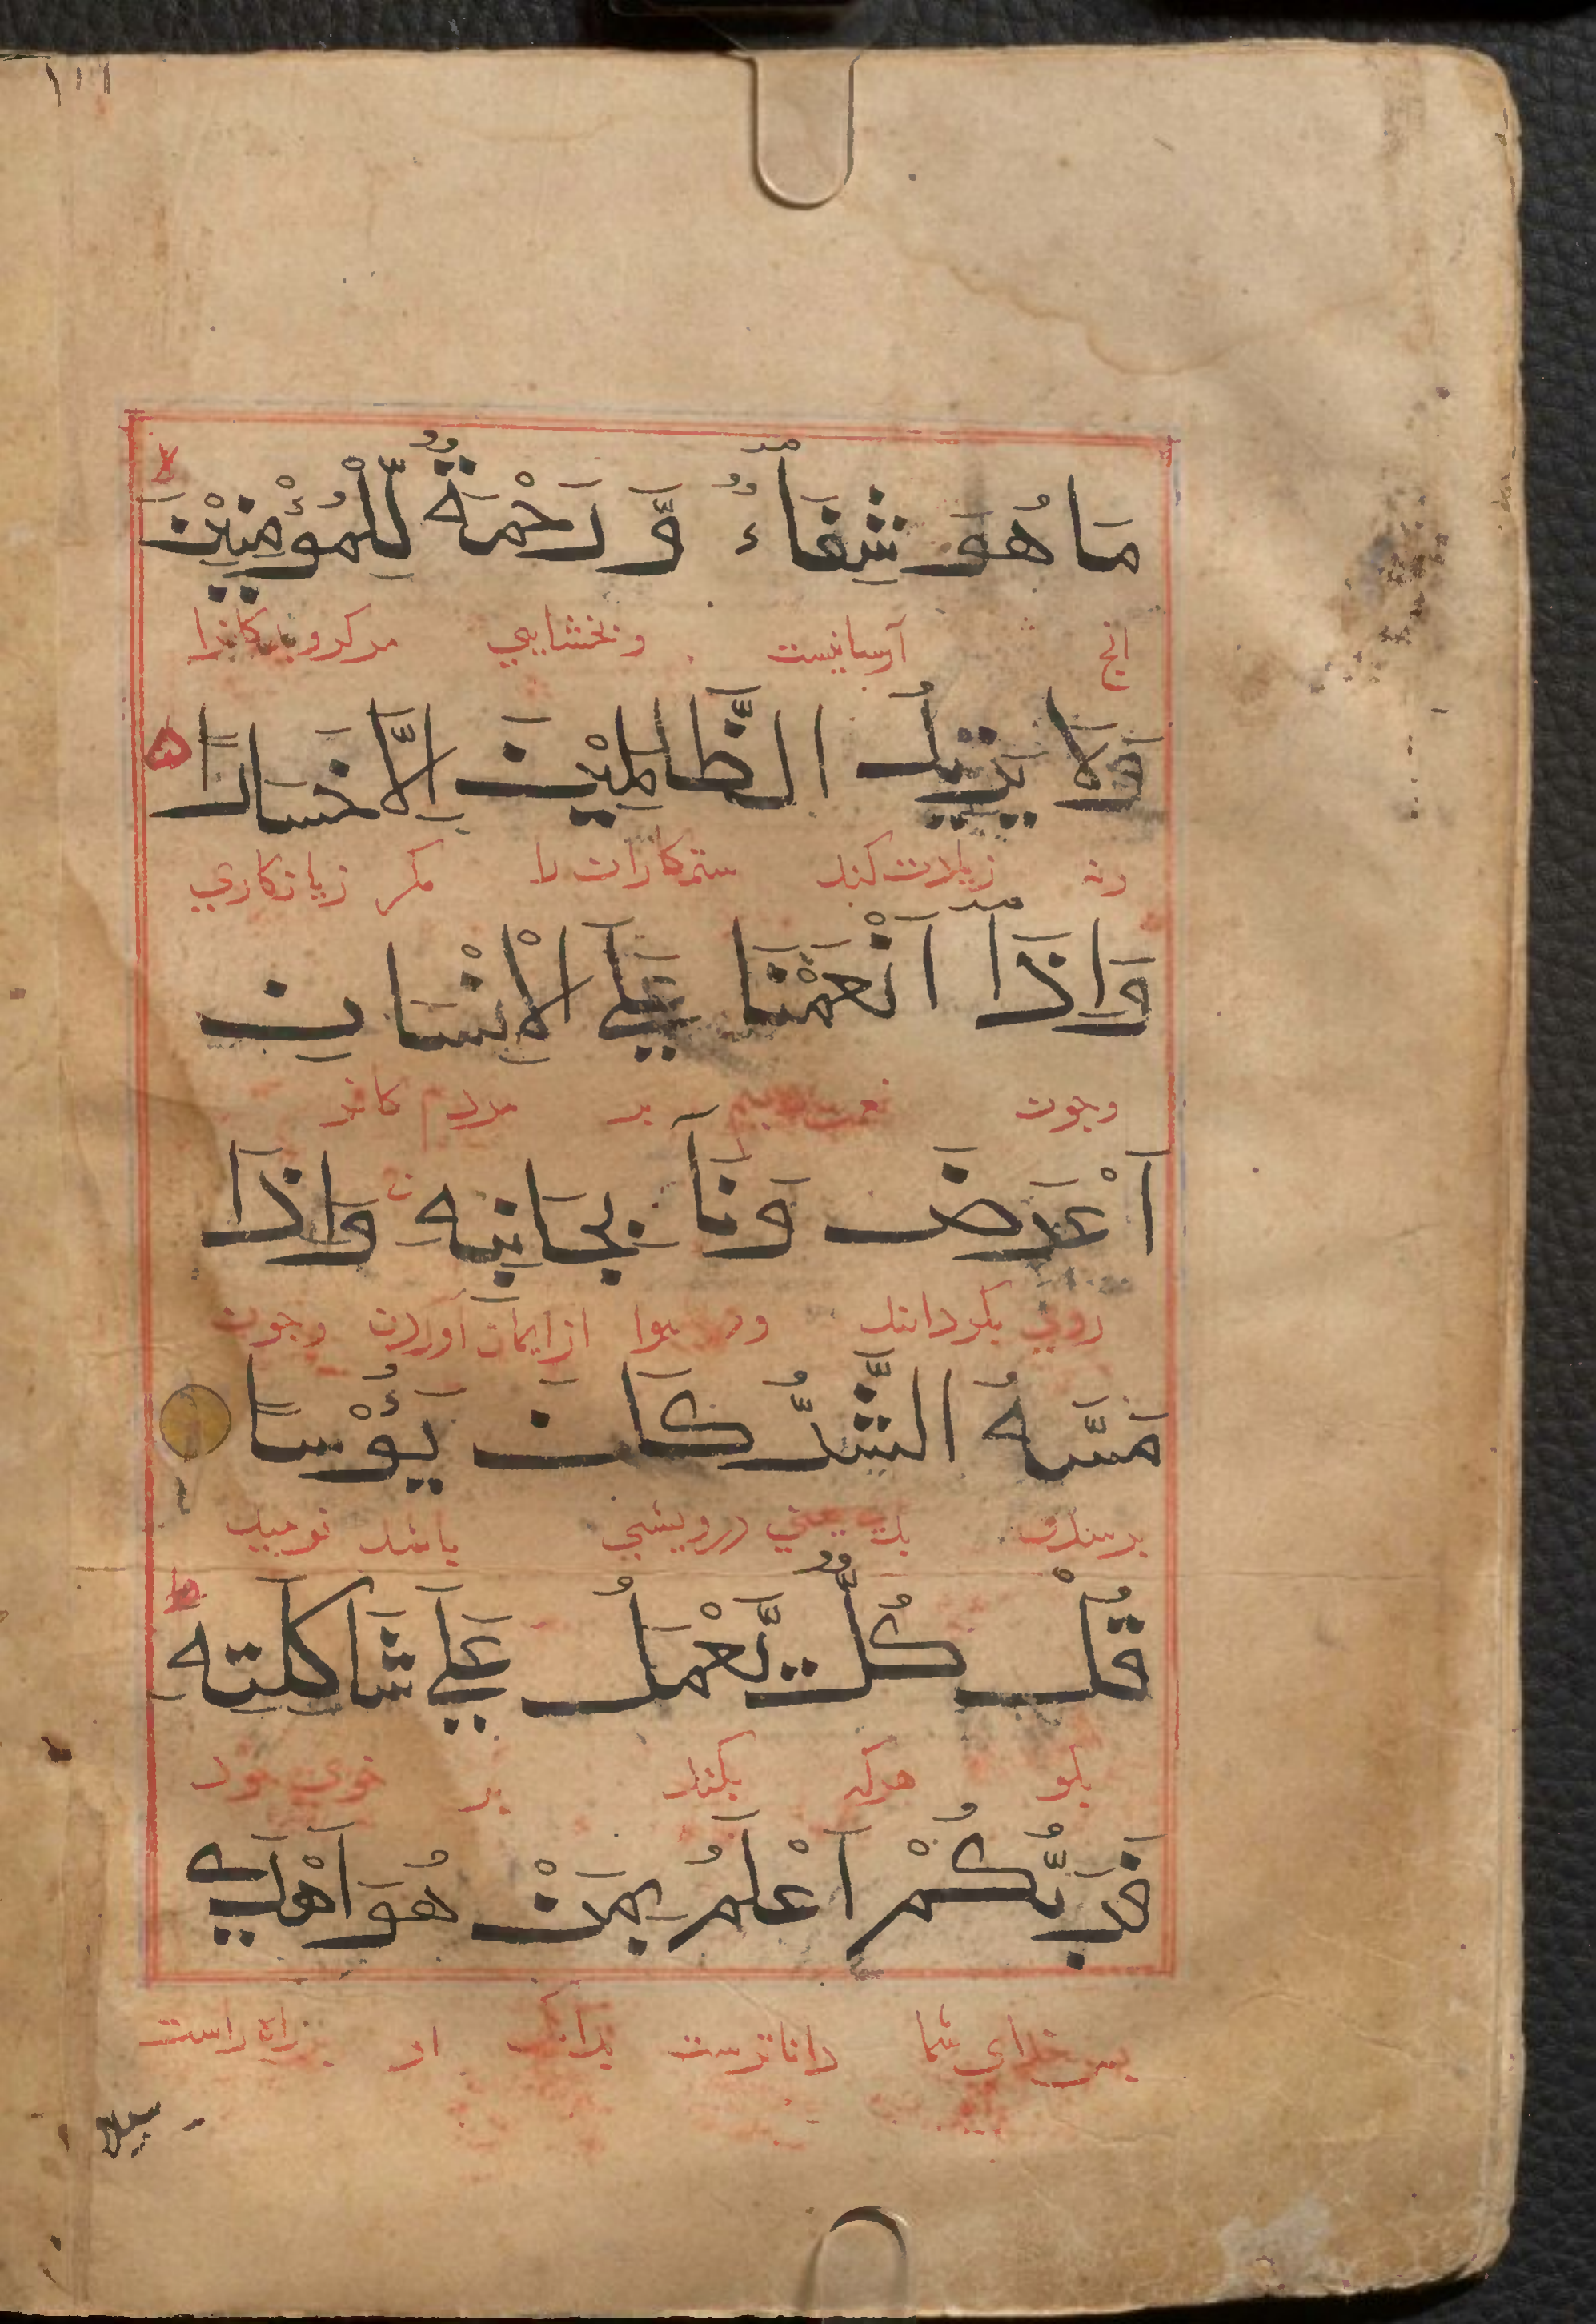 ١١١
مَا هُوَ شِفَآءٌ وَّ رَحْمَةٌ لِّلْمُؤْمِنِيْنَ لا
انج آسانیست و بخشایی مر کرویدکانرا
وَلَا يَزِيْدُ الظَّالِمِيْنَ اِلَّا خَسَارًا ه
و نه زیادت کند ستمکاران را مکر زیانکاری
وَاِذَآ اَنْعَمْنَا عَلَي الْاِنْسَانِ
وجون بر مردم کافر
اَعْرَضَ وَنَاٰ بِجَانِبِهٖ وَاِذَا
روی بکرداند از ایمان آوردن وجون
مَسَّهُ الشَّرُّ كَانَ يَؤُسًا
برسدش درویشی باشد نومید
قُلْ كُلٌّ يَّعْمَلُ عَلَي شَاكِلَتِهٖ ط
بکو هرکه بکند بر خوی خود
فَرَبُّكُمْ اَعْلَمُ بِمَنْ هُوَ اَهْدَي
بس خدای شما داناترست بدانک او راه راست
سبيلا